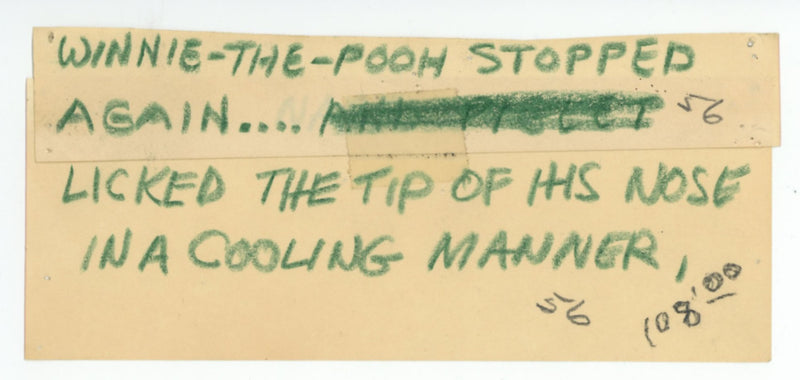 WINNIE-THE-POOH STOPPED
AGAIN.... 56
LICKED THE TIP OF HIS NOSE
IN A COOLING MANNER,
56
108'00